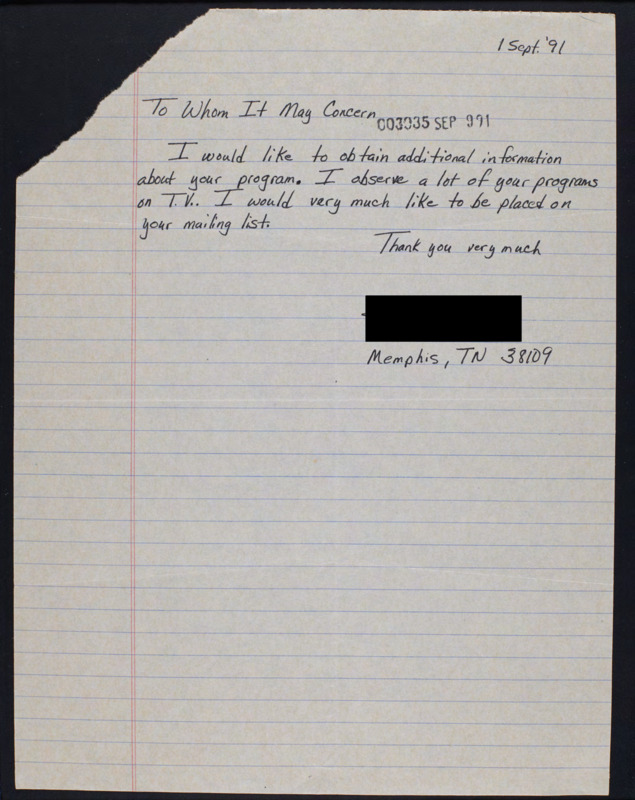 1 Sept. '91
To Whom It May Concern
003035 SEP 991
I would like to obtain additional information
about your program. I observe a lot of your programs
on T.V.. I would very much like to be placed on
your mailing list.
Thank you very much
Memphis, TN 38109